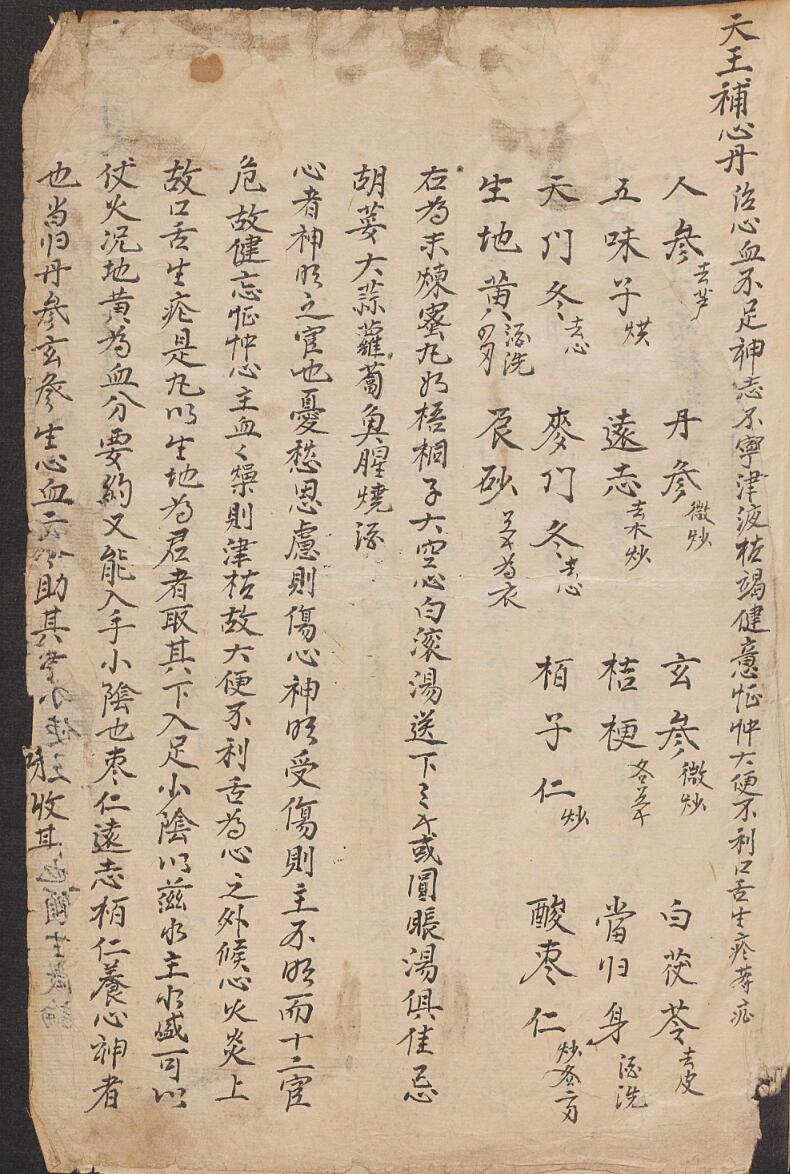 天王補心丹 治心血不足神志不寧津液枯竭健意怔忡大便不利口舌生疮等症
人參去芦 丹參微炒 玄參微炒 白茯苓去皮
五味子烘 遠志去木炒 桔梗各五𠂆 當归身酒洗
天门冬去心 麥门冬去心 栢子仁炒 酸枣仁炒各二刃
生地黄酒洗四刃 辰砂五𠂆為衣
右為末煉蜜丸如梧桐子大空心白滚湯送下三𠂆或圓眼湯俱佳忌
胡荽大蒜蘿蔔魚腥燒酒
心者神明之官也憂愁思慮則傷心神明受傷則主不明而十二官
危故健忘怔忡心主血々燥則津枯故大便不利舌為心之外候心火炎上
故口舌生疮是丸以生地為君者取其下入足少陰以滋水主水盛可以
伏火况地黄為血分要药又能入手少陰也枣仁遠志栢仁養心神者
也当归丹參玄參生心血 助其
收其